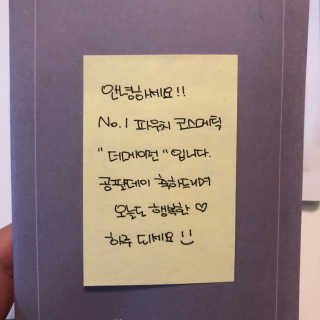 안녕하세요!!
No.1 파우치 코스메틱
"더메이런"입니다.
공팔데이 축하드리며
오늘도 행복한 ♡
하루 되세요 :)